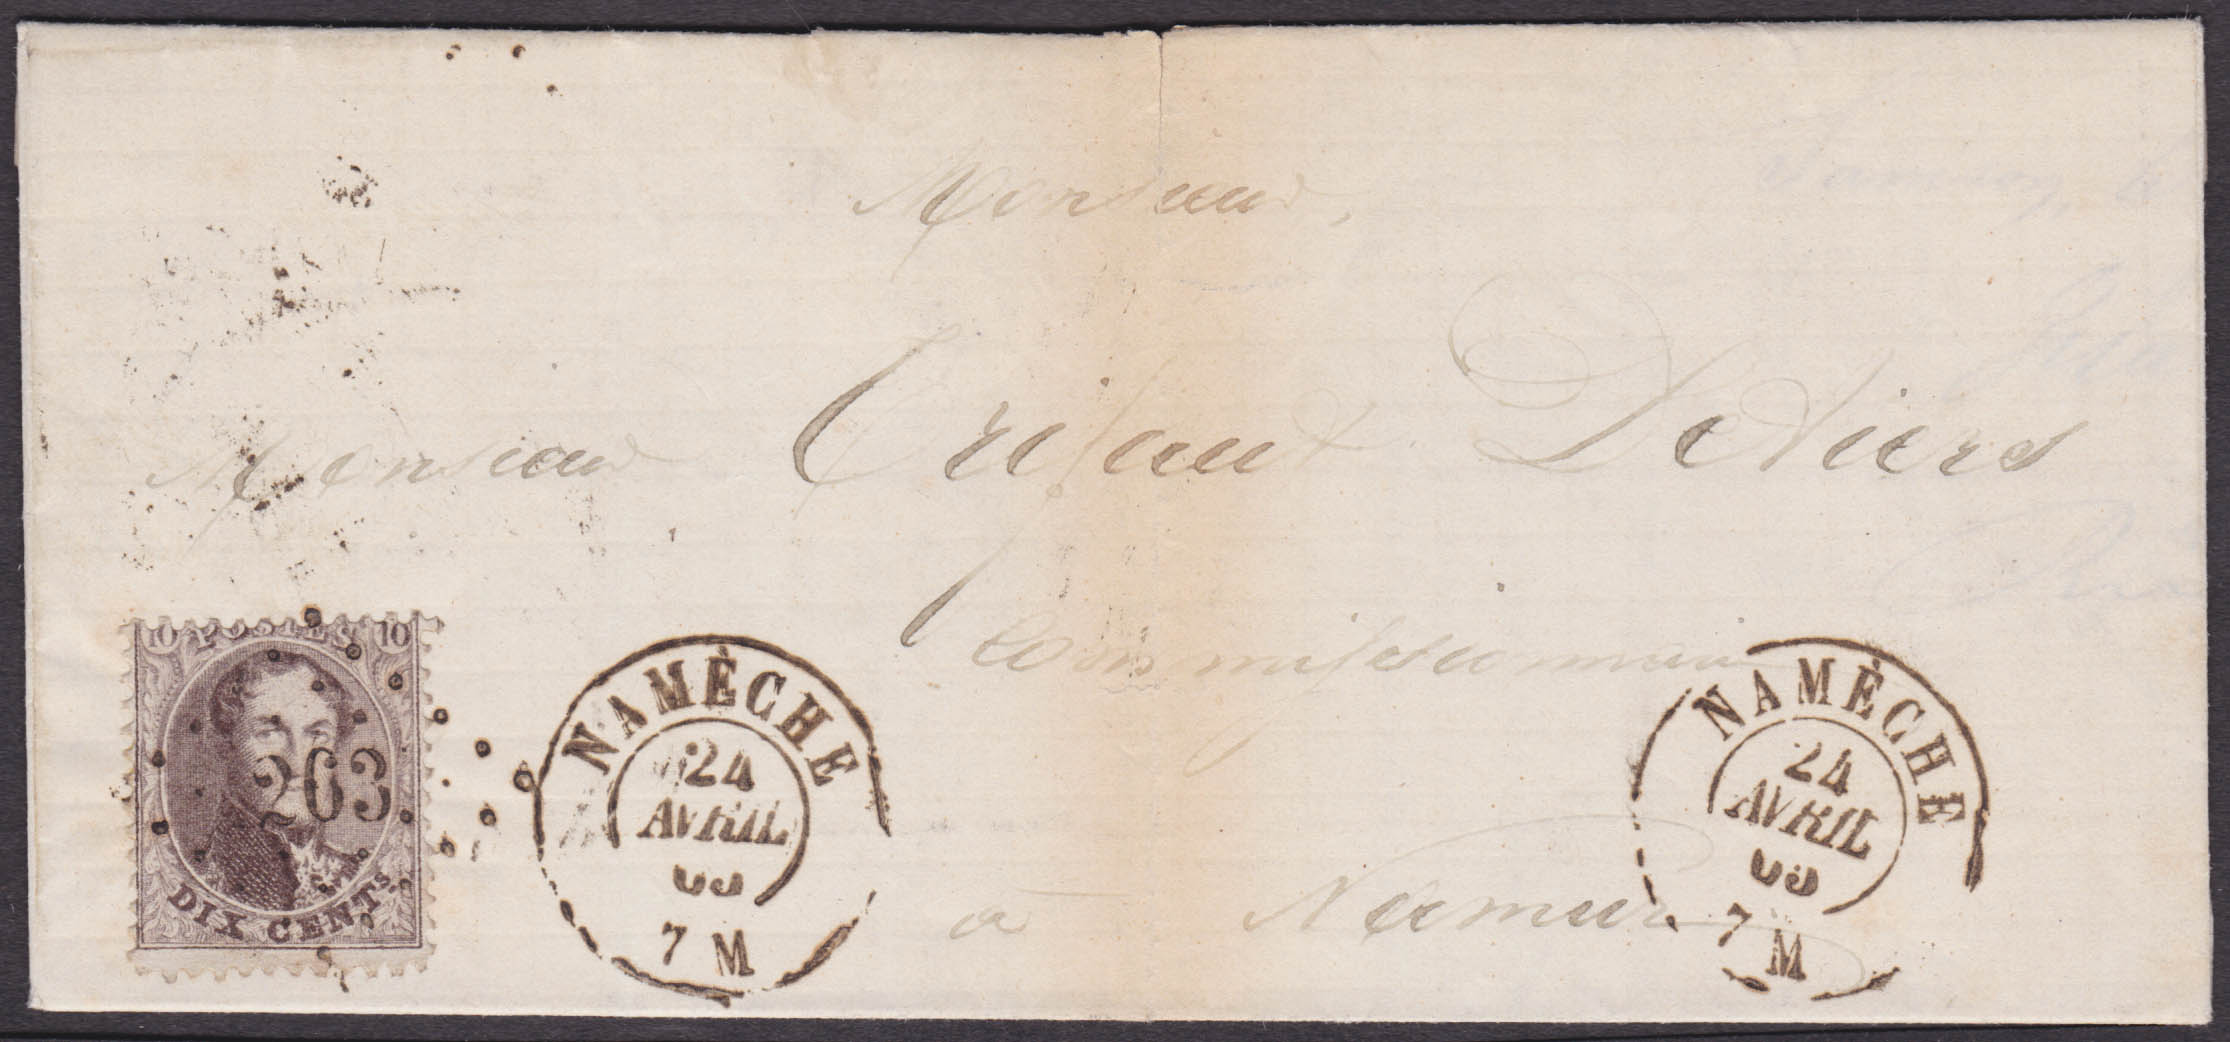 Monsieur,
Monsieur Crifaut Deviers
Commissionnaire
à Namur
10 POSTES 10
263
DIX CENTS.
NAMÈCHE
24
AVRIL
65
7 M
NAMÈCHE
24
AVRIL
65
7 M